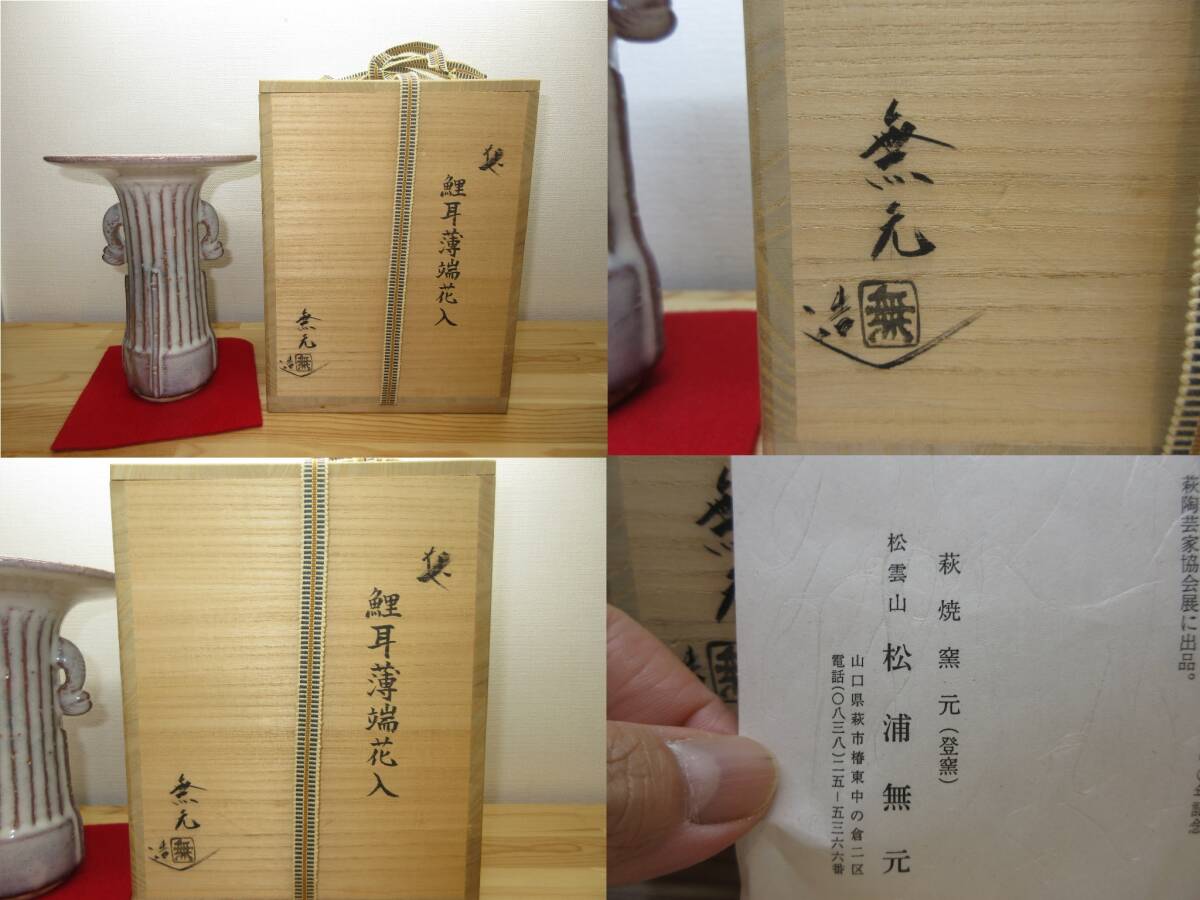 萩
鯉耳薄端花入
無元
造
無
無元
造
無
萩
鯉耳薄端花入
無元
造
無
萩陶芸家協会展に出品。
萩焼窯元（登窯）
松雲山 松浦無元
山口県萩市椿東中の倉二区
電話（〇八三八）二五－五三六六番
無元